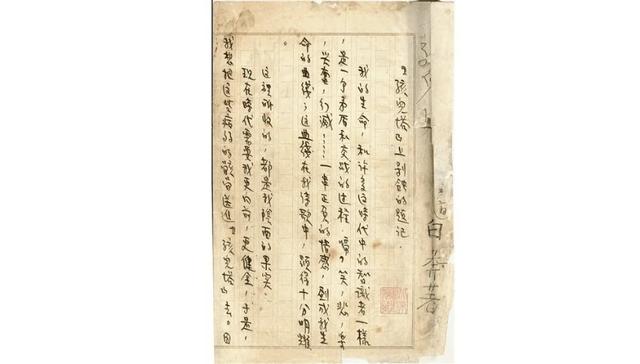 白莽著
『孩兒塔』上剝蝕的題記.
我的生命，和许多這時代中的智識者一樣
，是一个矛盾和交战的过程，啼，笑，悲，樂
，兴奋，幻滅……一串正負的情感，劃成我生
命的曲线；这曲线在我诗歌中，顕得十分明耀
。
这裡所收的，都是我陰面的果实.
现在時代需要我更向前，更健全，于是，
我想把這些病弱的骸骨送進『孩兒塔』去。因